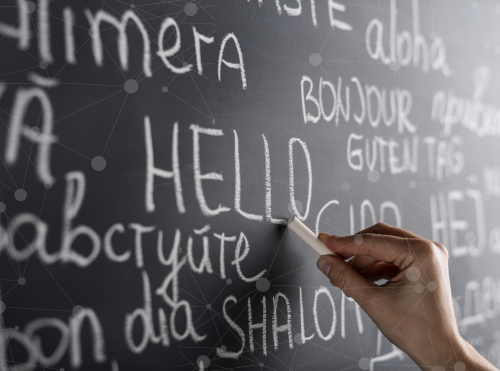 aloha
alimerA
BONJOUR
GUTEN TAG
HELLO
CIAO HEJ
равствуйте
SHALOM
bon dia